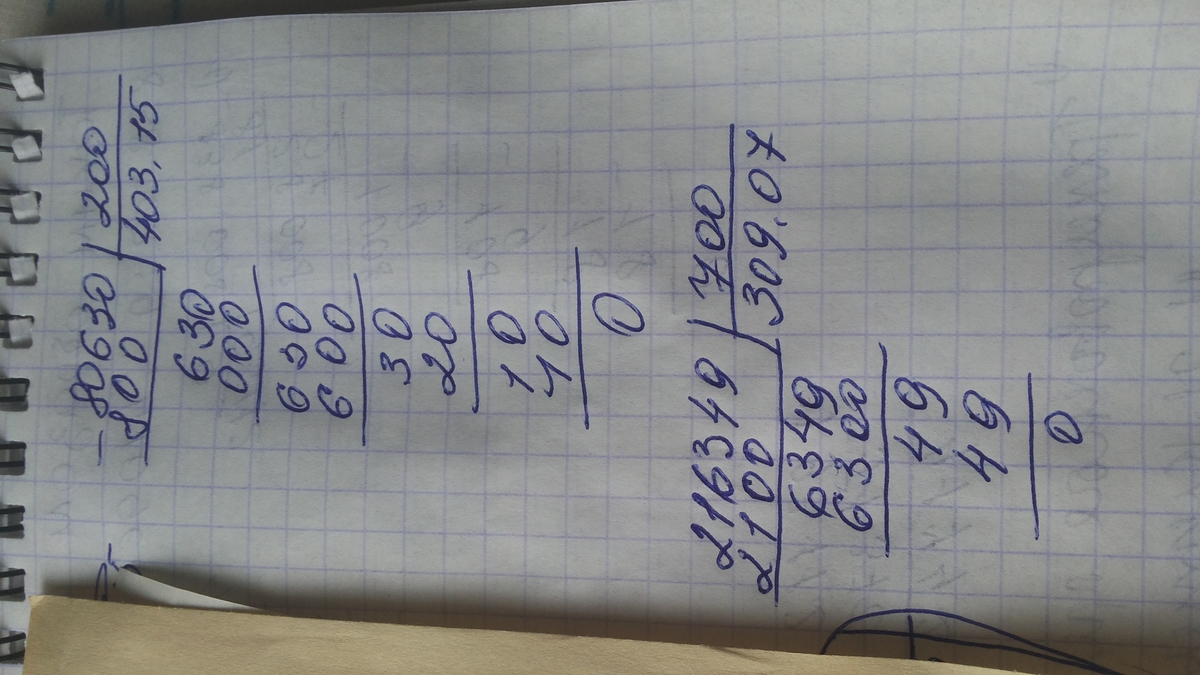 - 80630 | 200
800 | 403,15
630
000
630
600
30
20
10
10
0
216349 | 700
2100 | 309.07
6349
6300
49
49
0